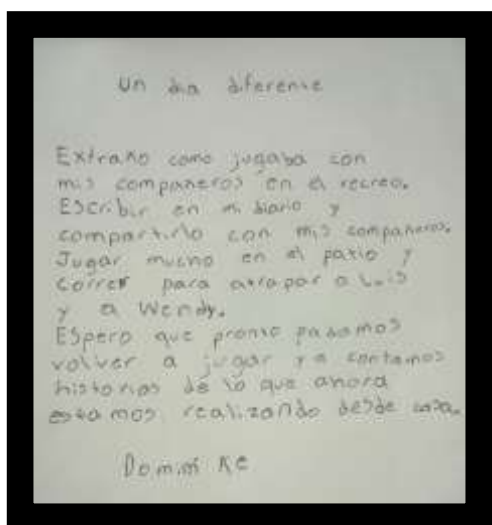 Un dia diferente
Extraño como jugaba con
mis compañeros en el recreo.
Escribir en mi diario y
compartirlo con mis compañeros.
Jugar mucho en el patio y
correr para atrapar a Luis
y a Wendy.
Espero que pronto podamos
volver a jugar y a contarnos
historias de lo que ahora
estamos realizando desde casa.